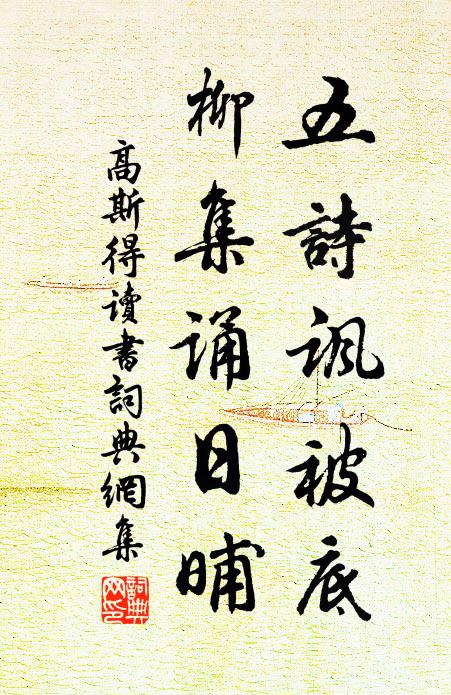 五詩諷被底
柳集誦日晡
高斯得讀書詞典網集
詞典網印